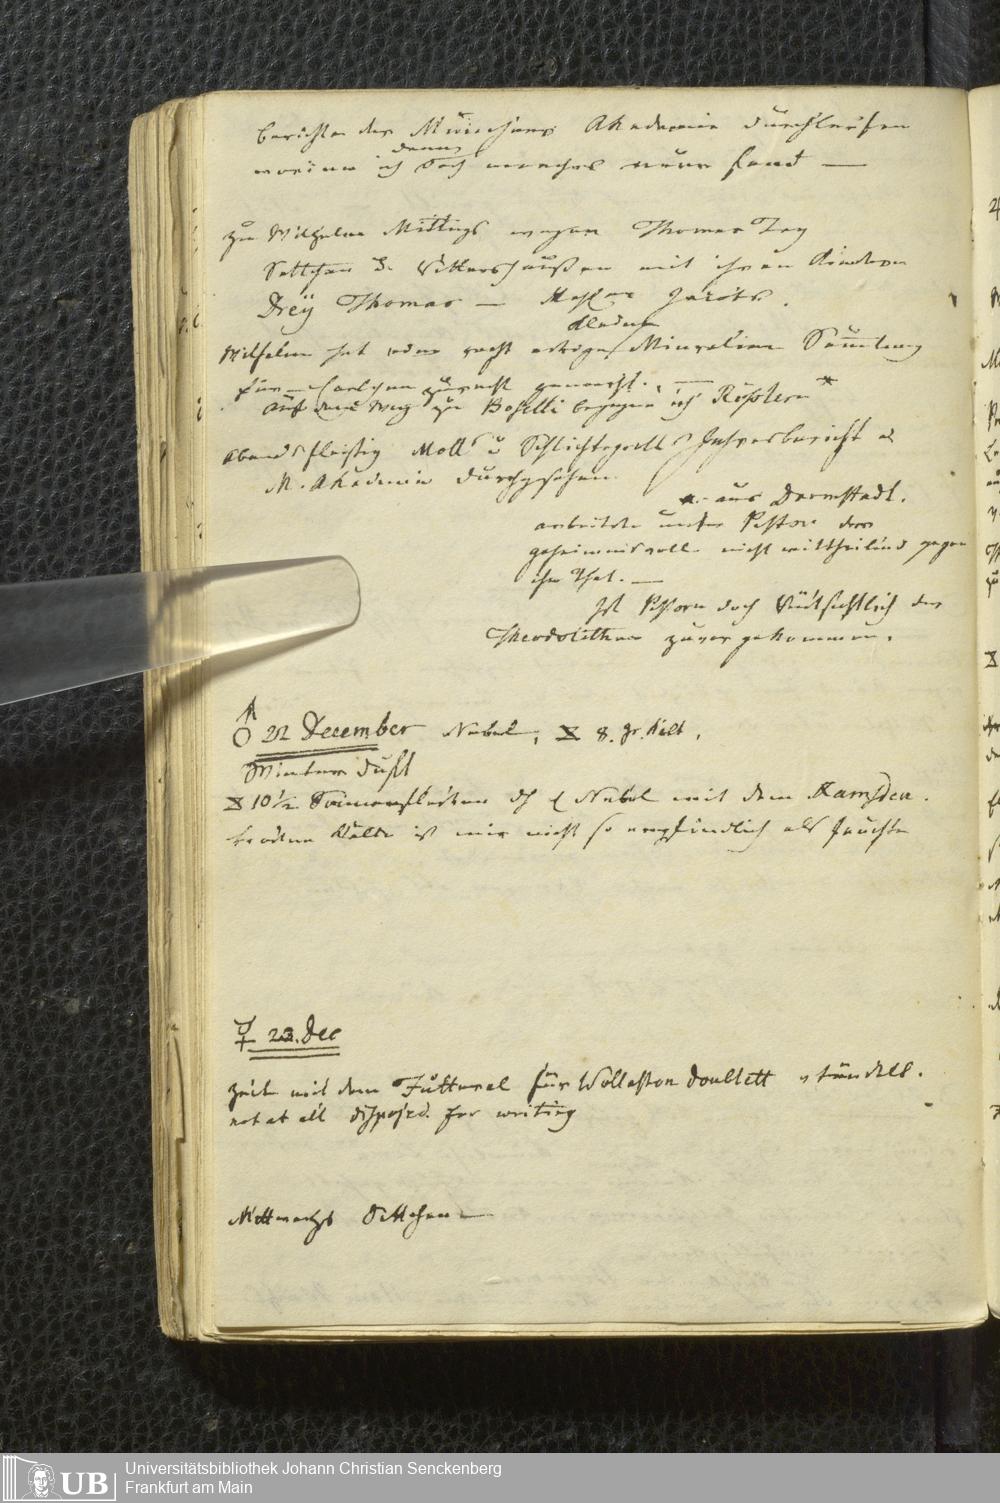 berichte der Münchner Akademie durchlaufen
worinn ich doch manches neue fand —
denn
zu Wilhelm Mittags wegen Thomas Tag
Settchen v. Vittershaußen mit ihren Kindern
Drey Thomas —
kleine
Wilhelm hat eine recht artige Mineralien Sammlung
für Carlchen zurecht gemacht. —
Auf dem Weg zu Bosselli begegne ich Rößlern *
Abends fleisig Molls u Schlichtegrolls Jahresbericht d
M. Akademie durchgesehen.
*. aus Darmstadt.
arbeitete unter Pistor der
geheimnisvoll nicht mittheilend gegen
ihn that. —
Ist Pistorn doch hinsichtlich der
Theodolithen zuvor gekommen.
♂ 22 December Nebel, 8. gr. Kält.
Winter Duft
10½ Sonnenflecken dch Nebel mit dem Ramsden.
trockne Kälte ist mir nicht so empfindlich als feuchte
☿ 23. Dec
Zeit mit dem Futteral für Wollaston Doublett vertändelt.
not at all disposed for writing
Mittwochs Dittchen —
Universitätsbibliothek Johann Christian Senckenberg
UB Frankfurt am Main